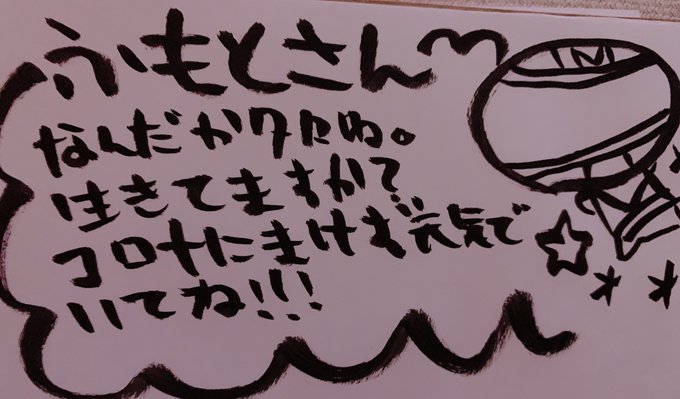 ふもとさん
なんだかクタね。
生きてますかて
コロナにまけず元気で
いてね!!!